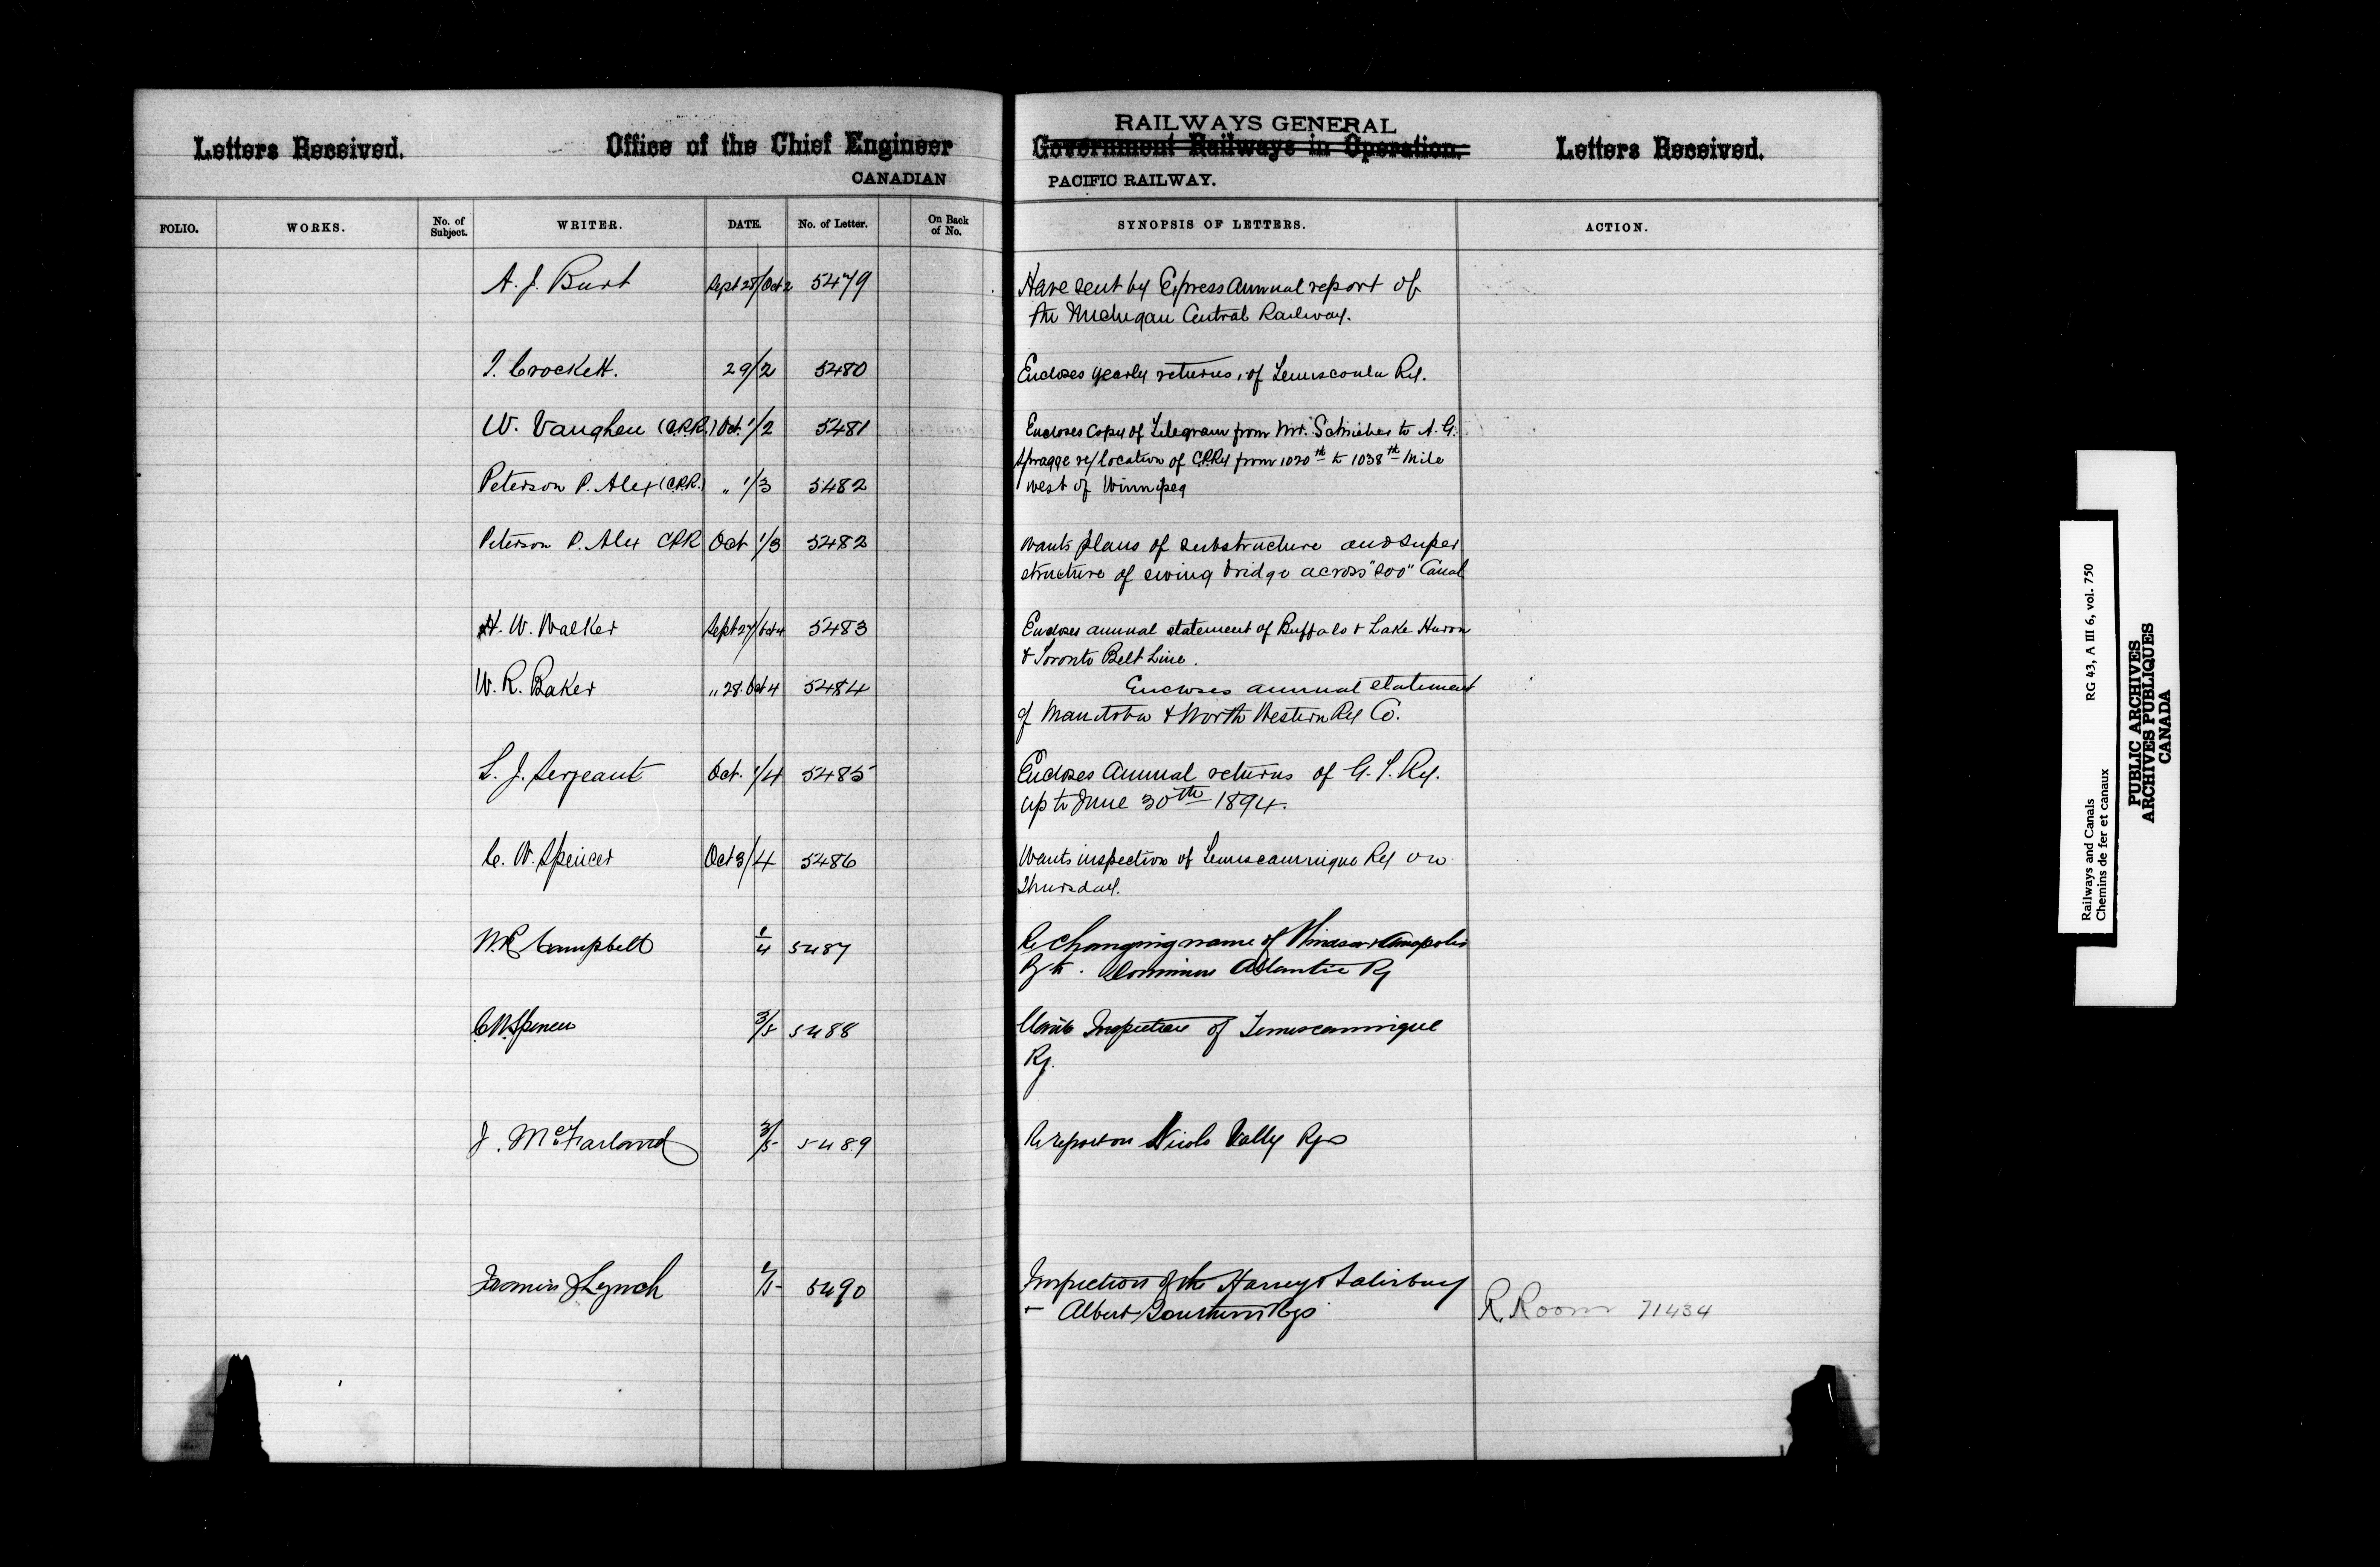 Letters Received. Office of the Chief Engineer
CANADIAN
RAILWAYS GENERAL
Government Railways in Operation. Letters Received.
PACIFIC RAILWAY.
FOLIO. WORKS. No. of Subject. WRITER. DATE. No. of Letter. On Back of No. SYNOPSIS OF LETTERS. ACTION.
A. J. Burt Sept 28/Oct 2 5479 Have sent by Express Annual report of
the Michigan Central Railway.
T. Crockett. 29/2 5480 Encloses yearly returns, of Temiscouata Ry.
W. Vaughen (C.P.R.) Oct. 1/2 5481 Encloses copy of Telegram from Mr. Schrieber to A. G.
Spragge re/location of CPRy from 1020th to 1038th Mile
Peterson P. Alex (C.P.R.) " 1/3 5482 west of Winnipeg
Peterson P. Alex CPR Oct 1/3 5482 Wants plans of substructure and super
structure of swing bridge across "Soo" Canal
H. W. Walker Sept 27/Oct 4 5483 Encloses annual statement of Buffalo & Lake Huron
& Toronto Belt Line.
W. R. Baker " 28. Oct 4 5484 Encloses annual statement
of Manitoba & North Western Ry Co.
L. J. Sergeant Oct. 1/4 5485 Encloses Annual returns of G. T. Ry.
up to June 30th 1894.
C. W. Spencer Oct 3/4 5486 Wants inspection of Temiscamingue Ry on
Thursday.
W. R. Campbell 1/4 5487 Re changing name of Windsor & Annapolis
Ry to. Dominion Atlantic Ry
C W. Spencer 3/5 5488 Wants Inspection of Temiscamingue
Ry.
J. McFarland 3/5 5489 Re report on Nicola Vally Rys
J Lynch 5490 Inspection of the Harvey & Salisbury
+ Albert Southern Rys R. Room 71434
Railways and Canals RG 43, A III 6, vol. 750
Chemins de fer et canaux
PUBLIC ARCHIVES
ARCHIVES PUBLIQUES
CANADA